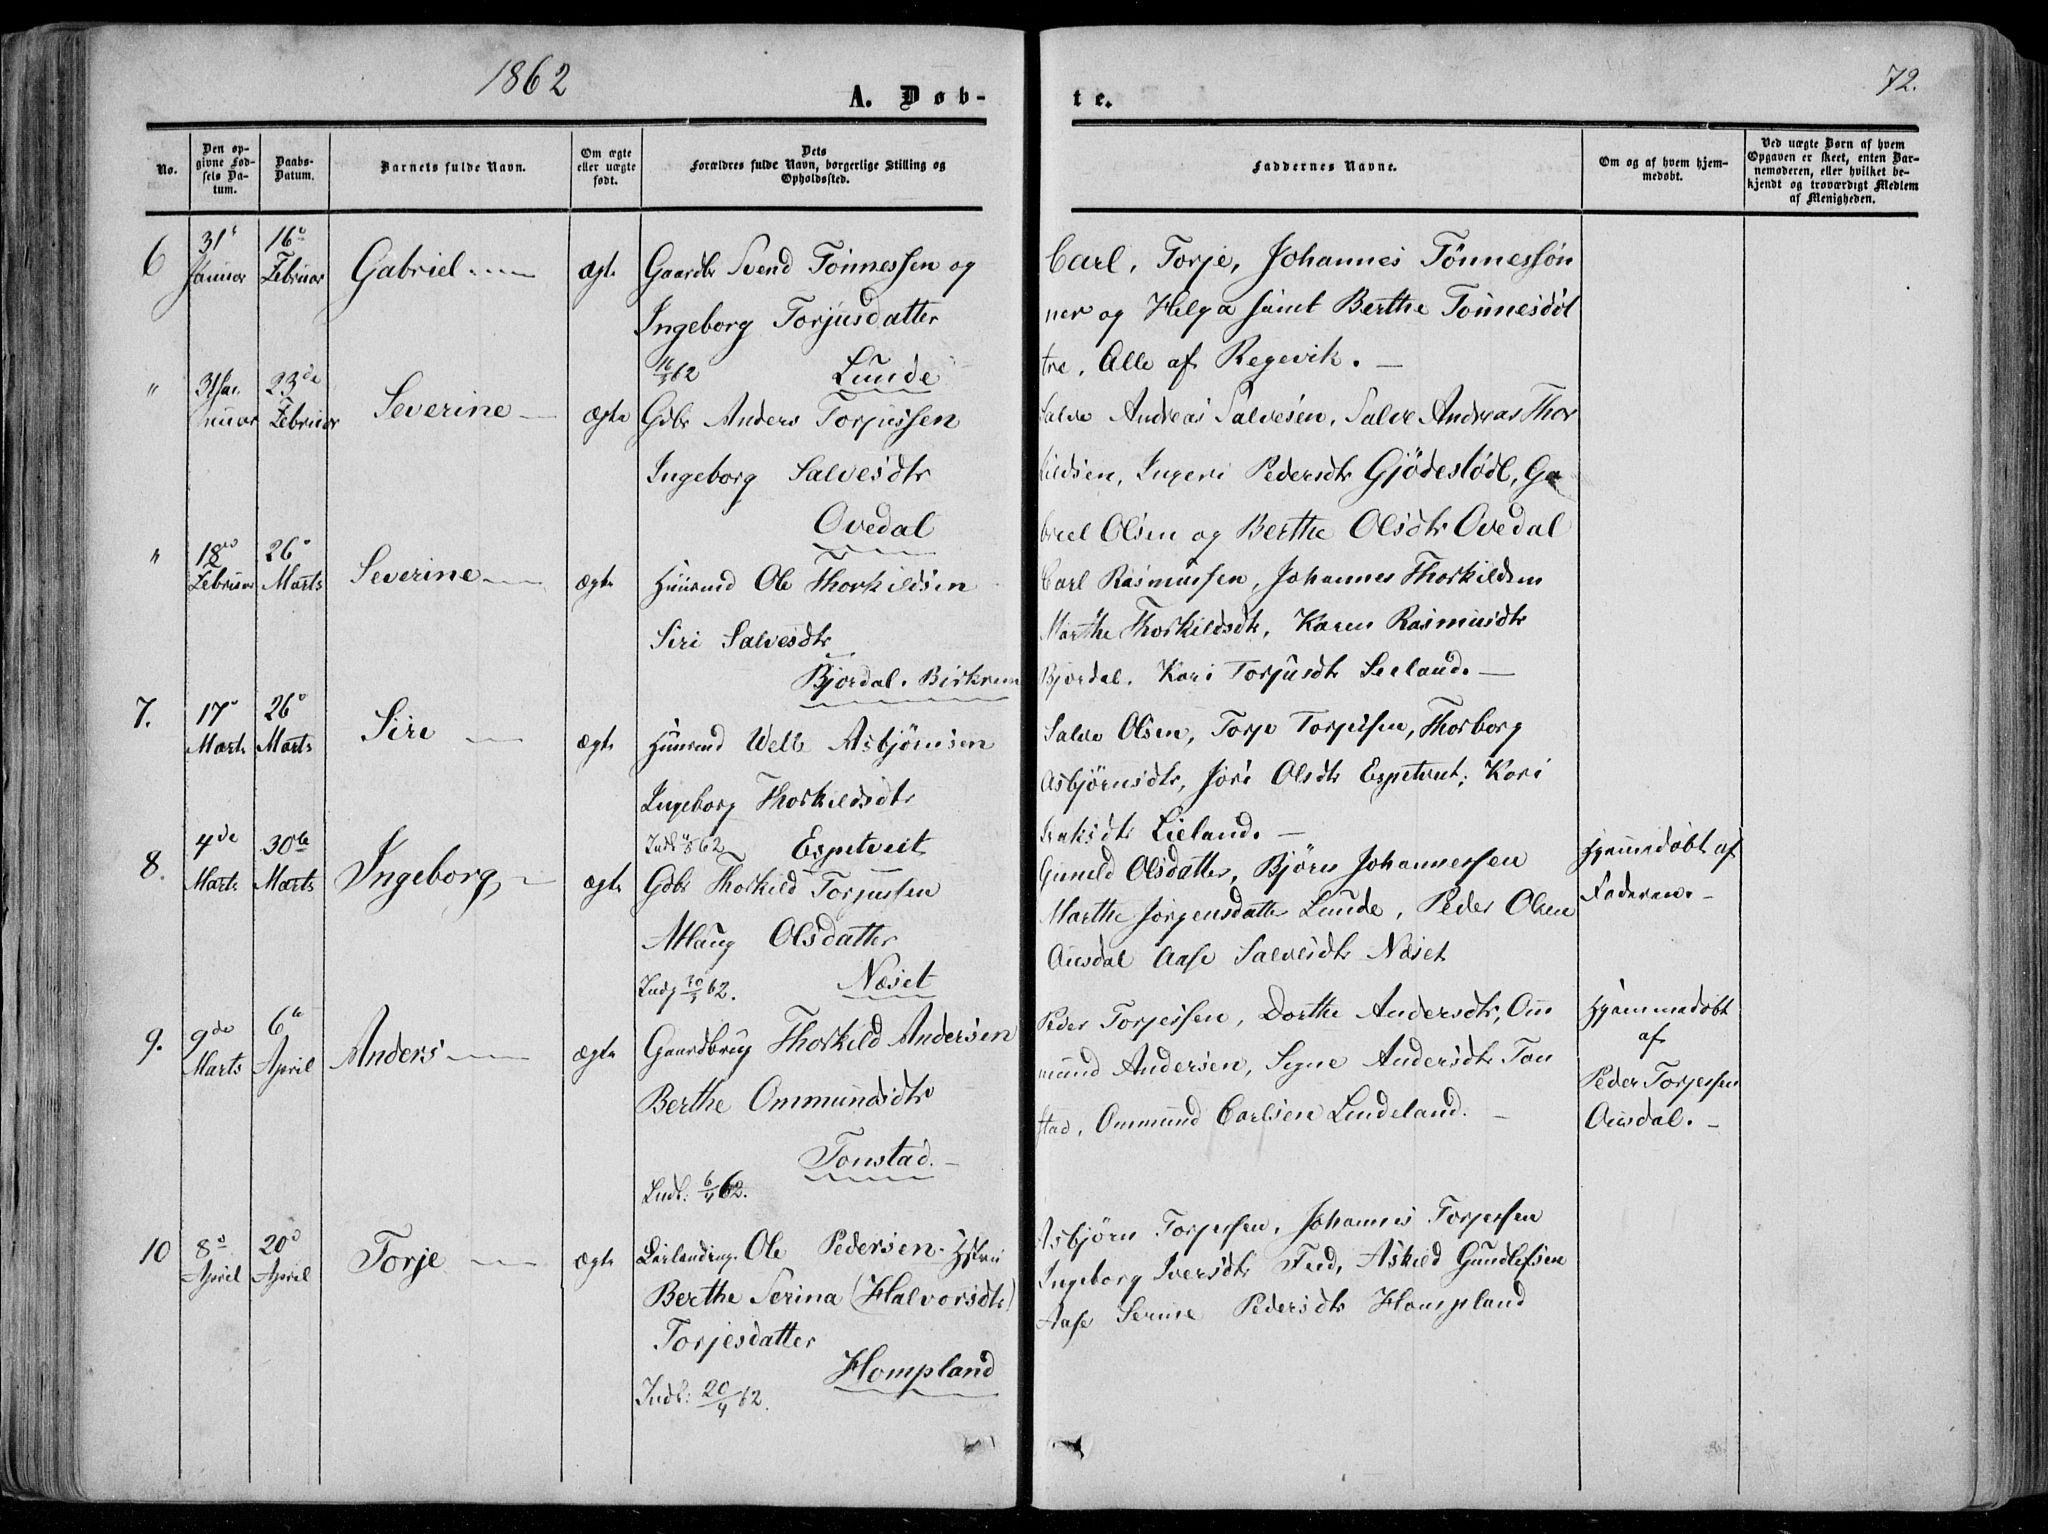 1862
72.
A. Døb-
te.
No.
Den op-
givne Fød-
sels Da-
tum.
Daabs-
Datum.
Barnets fulde Navn.
Om ægte
eller uægte
født.
Dets
Forældres fulde Navn, borgerlige Stilling og
Opholdssted.
Faddernes Navne.
Om og af hvem hjem-
medøbt.
Ved uægte Børn af hvem
Opgaven er skeet, enten Bar-
nemoderen, eller hvilket be-
kjendt og troværdigt Medlem
af Menigheden.
6
31
Januar
16
Februar
Gabriel
Ægte
Gaardbr Svend Tönnessen og
Ingeborg Torjusdatter
62 Lunde
Carl, Torje, Johannes Tönnessön
ner og Helga samt Berthe Tönnesdöt
tre, Alle af Regevik.
"
31 Ja
nuar
23de
Februar
Severine
Ægte
Gdbr Anders Torjussen
Ingeborg Salvesdtr
Ovedal
Salve Andreas Salvesen, Salve Andreas Thor
kildsen, Ingeri Pedersdtr Gjödeslödl, Ga
briel Olsen og Berthe Olsdtr Ovedal
"
18
Februar
26
Marts
Severine
ægte
Huusmd Ole Thorkildsen
Siri Salvesdtr
Bjordal. Birkrem
Carl Rasmussen, Johannes Thorkildsen
Marthe Thorkildsdtr, Karen Rasmusdtr
Bjordal. Kari Torjusdtr Seeland.
7.
17
Marts
26
Marts
Sire
ægte
Huusmd Asbjørnsen
Ingeborg Thorkildsdtr
62 Espetveit
Salve Olsen, Torje Torjussen, Thorborg
Asbjørnsdtr, Jori Olsdtr Espetveit; Kari
Isaksdtr Lieland.
8.
4de
Marts
30te
Marts
Ingeborg
ægte
Gdbr Thorkild Torjussen
Atlaug Olsdatter
Indg 30/3 62. Næset
Guneld Olsdatter, Bjørn Johannessen
Marthe Jørgensdatter Lunde, Peder Olsen
Ousdal Aase Salvesdtr Næset
Hjemmedøbt af
Faderen.
9.
9de
Marts
6te
April
Anders
ægte
Gaardbrug Thorkild Andersen
Berthe Ommundsdtr
Tonstad.
Indl: 6/4 62.
Peder Torjessen, Dorthe Andersdtr, Om
mund Andersen, Signe Andersdtr Ton
stad, Ommund Carlsen Lindeland.
Hjemmedøbt
af
Peder Torjessen
Ousdal.
10
8
April
20
April
Torje
ægte
Leilending. Ole Pedersen. Hstru
Berthe Serina (Halvorsdtr)
Torjesdatter
Hompland
Indl: 20/4 62.
Asbjörn Torjessen, Johannes Torjessen
Ingeborg Iversdtr Fed, Askild Gundlefsen
Aase Serine Pedersdtr Hompland